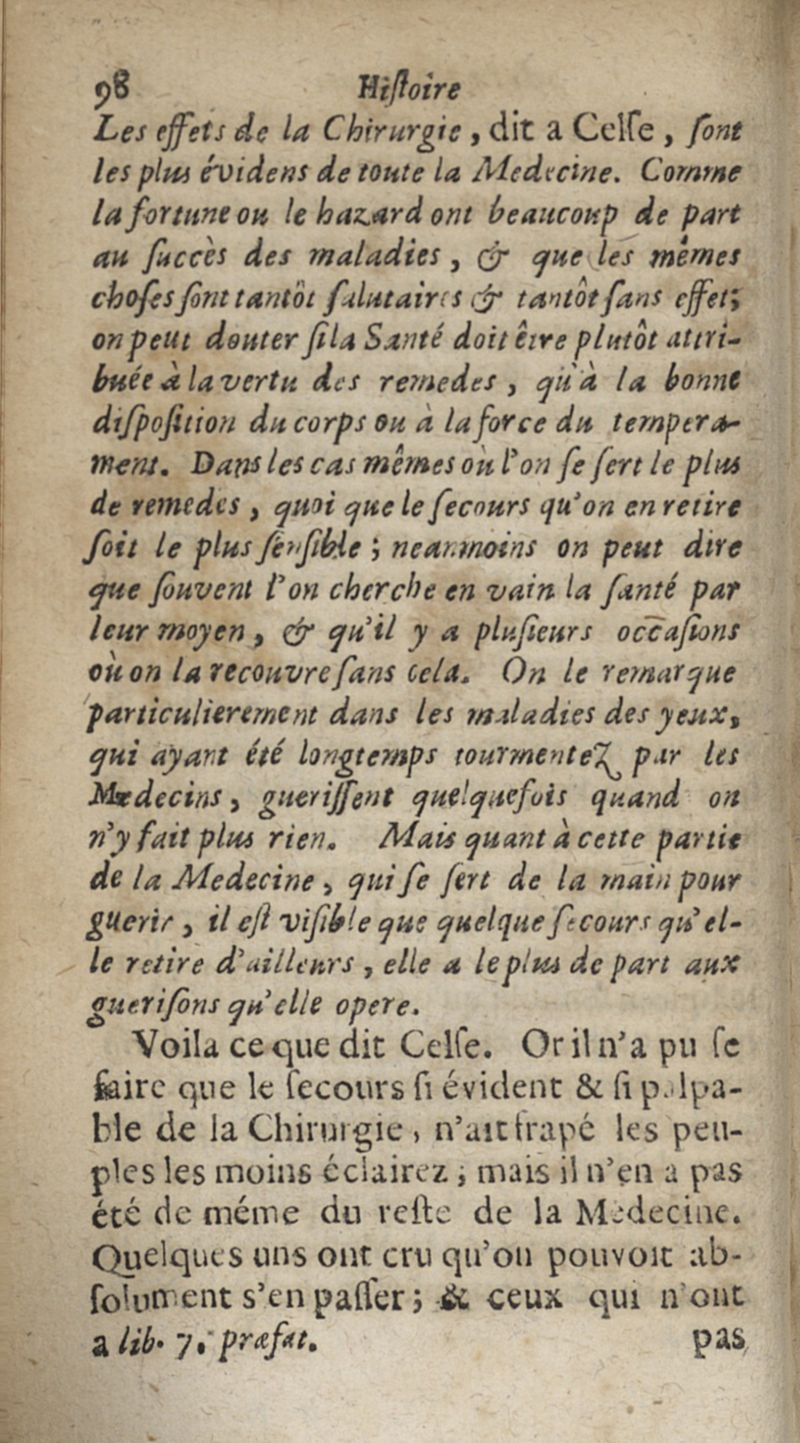 98 Hiſtoire
Les effets de la Chirurgie, dit a Celſe, ſont
les plus évidens de toute la Medecine. Comme
la fortune ou le hazard ont beaucoup de part
au ſuccès des maladies, & que les mêmes
choſes ſont tantôt ſalutaires & tantôt ſans effet;
on peut douter ſi la Santé doit être plutôt attri-
buée à la vertu des remedes, qu'à la bonne
diſpoſition du corps ou à la force du tempera-
ment. Dans les cas mêmes où l'on ſe ſert le plus
de remedes, quoi que le ſecours qu'on en retire
ſoit le plus ſenſible; neanmoins on peut dire
que ſouvent l'on cherche en vain la ſanté par
leur moyen, & qu'il y a pluſieurs occaſions
où on la recouvre ſans cela. On le remarque
particulierement dans les maladies des yeux,
qui ayant été longtemps tourmentez par les
Medecins, gueriſſent quelquefois quand on
n'y fait plus rien. Mais quant à cette partie
de la Medecine, qui ſe ſert de la main pour
guerir, il eſt viſible que quelque ſecours qu'el-
le retire d'ailleurs, elle a le plus de part aux
gueriſons qu'elle opere.
Voila ce que dit Celſe. Or il n'a pu ſe
faire que le ſecours ſi évident & ſi palpa-
ble de la Chirurgie, n'ait frapé les peu-
ples les moins éclairez; mais il n'en a pas
été de méme du reſte de la Medecine.
Quelques uns ont cru qu'on pouvoit ab-
ſolument s'en paſſer; & ceux qui n'ont
a lib. 7. præfat. pas